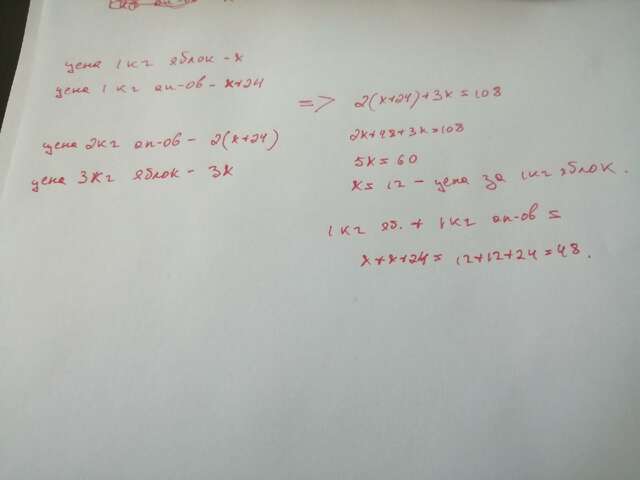 цена 1кг яблок - x
цена 1кг ап-ов - x+24
цена 2кг ап-ов - 2(x+24)
цена 3кг яблок - 3x
=> 2(x+24)+3x=108
2x+48+3x=108
5x=60
x=12 - цена за 1кг яблок.
1кг яб. + 1кг ап-ов =
x+x+24=12+12+24=48.